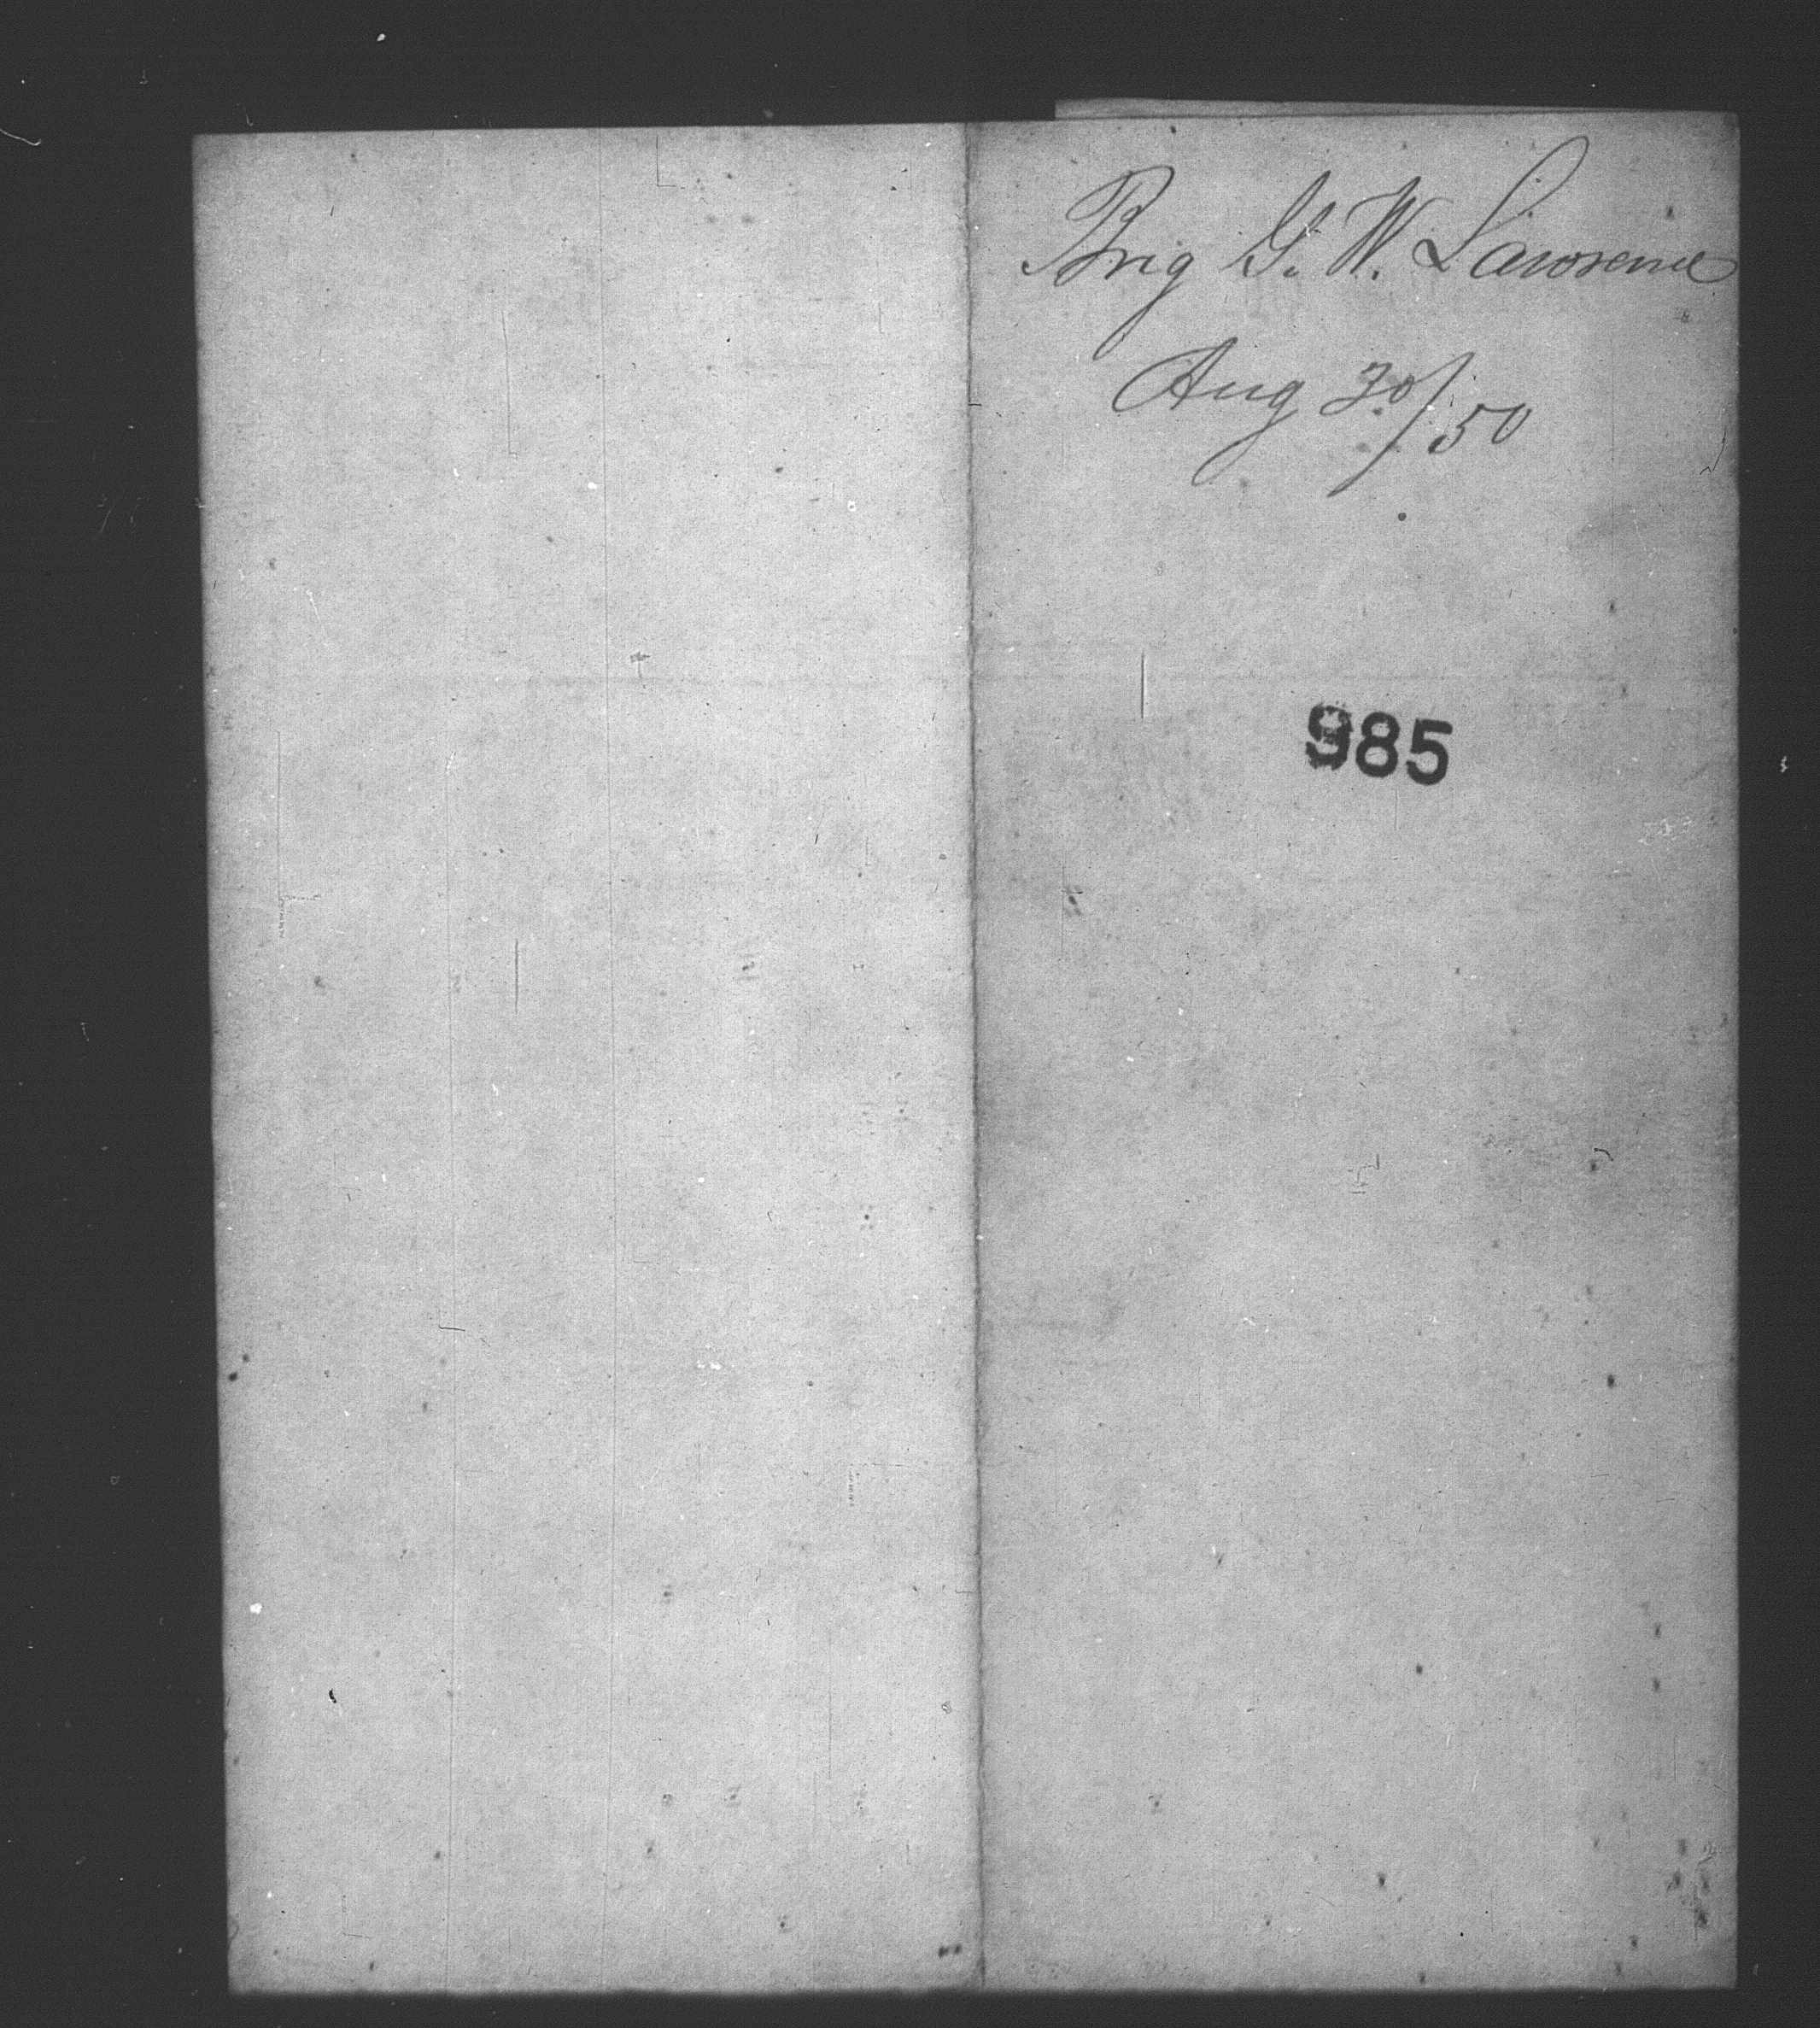 Brig G. W. Lawrence
Aug 30/50
985